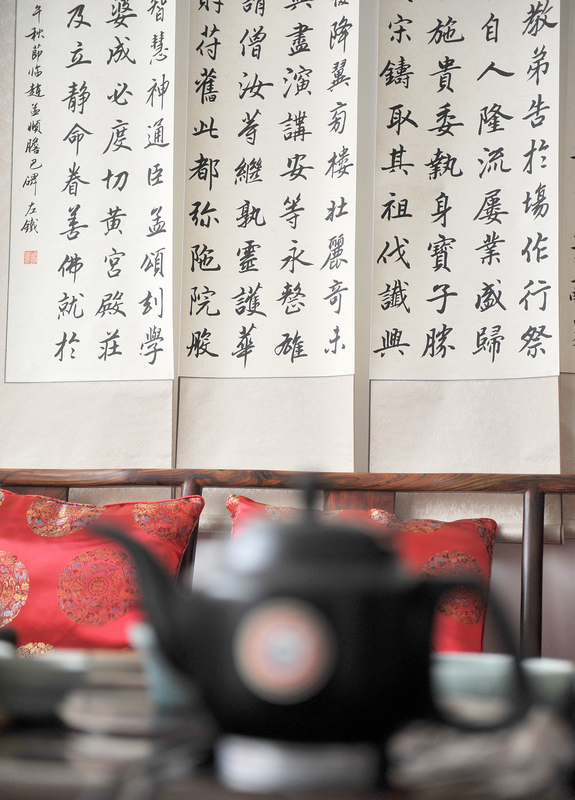 敬弟告於場作行祭
自人隆流屡業盛歸
施貴委執身寶子勝
宋鑄取其祖伐讖興
降翼旁樓壮麗奇未
盡演講安等永慜雄
謂僧汝等繼孰靈護華
符舊此都弥陁院般
智慧神通臣孟頫刻學
婆成必度切黄宮殿荘
及立静命眷善佛就於
午秋節临趙孟頫膽巴碑 左鐵